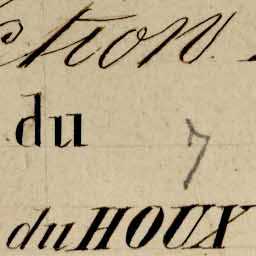 ction
du
7
du HOUX